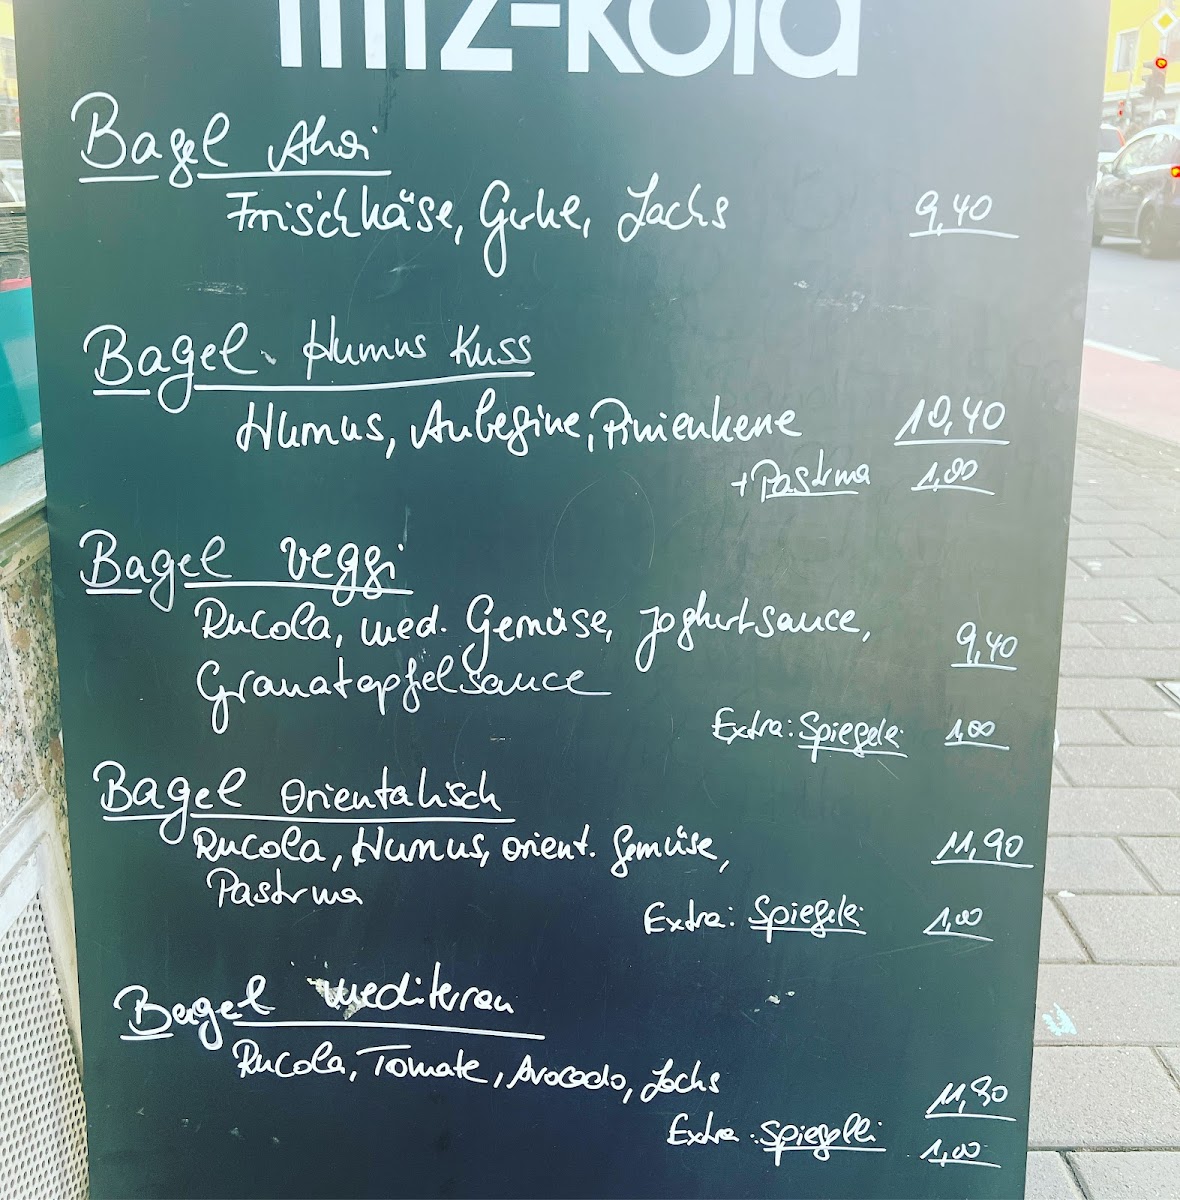 fritz-kola
Bagel Ahoi
Frischkäse, Gurke, Lachs 9,40
Bagel Humus Kuss
Humus, Aubegine, Pinienkerne 10,40
+ Pastrma 1,00
Bagel veggi
Rucola, med. Gemüse, Joghurtsauce,
9,40
Granatapfelsauce
Extra: Spiegelei 1,00
Bagel orientalisch
Rucola, Humus, orient. Gemüse, 11,90
Pastrma
Extra: Spiegelei 1,00
Bagel mediterran
Rucola, Tomate, Avocado, Lachs
11,90
Extra: Spiegelei 1,00